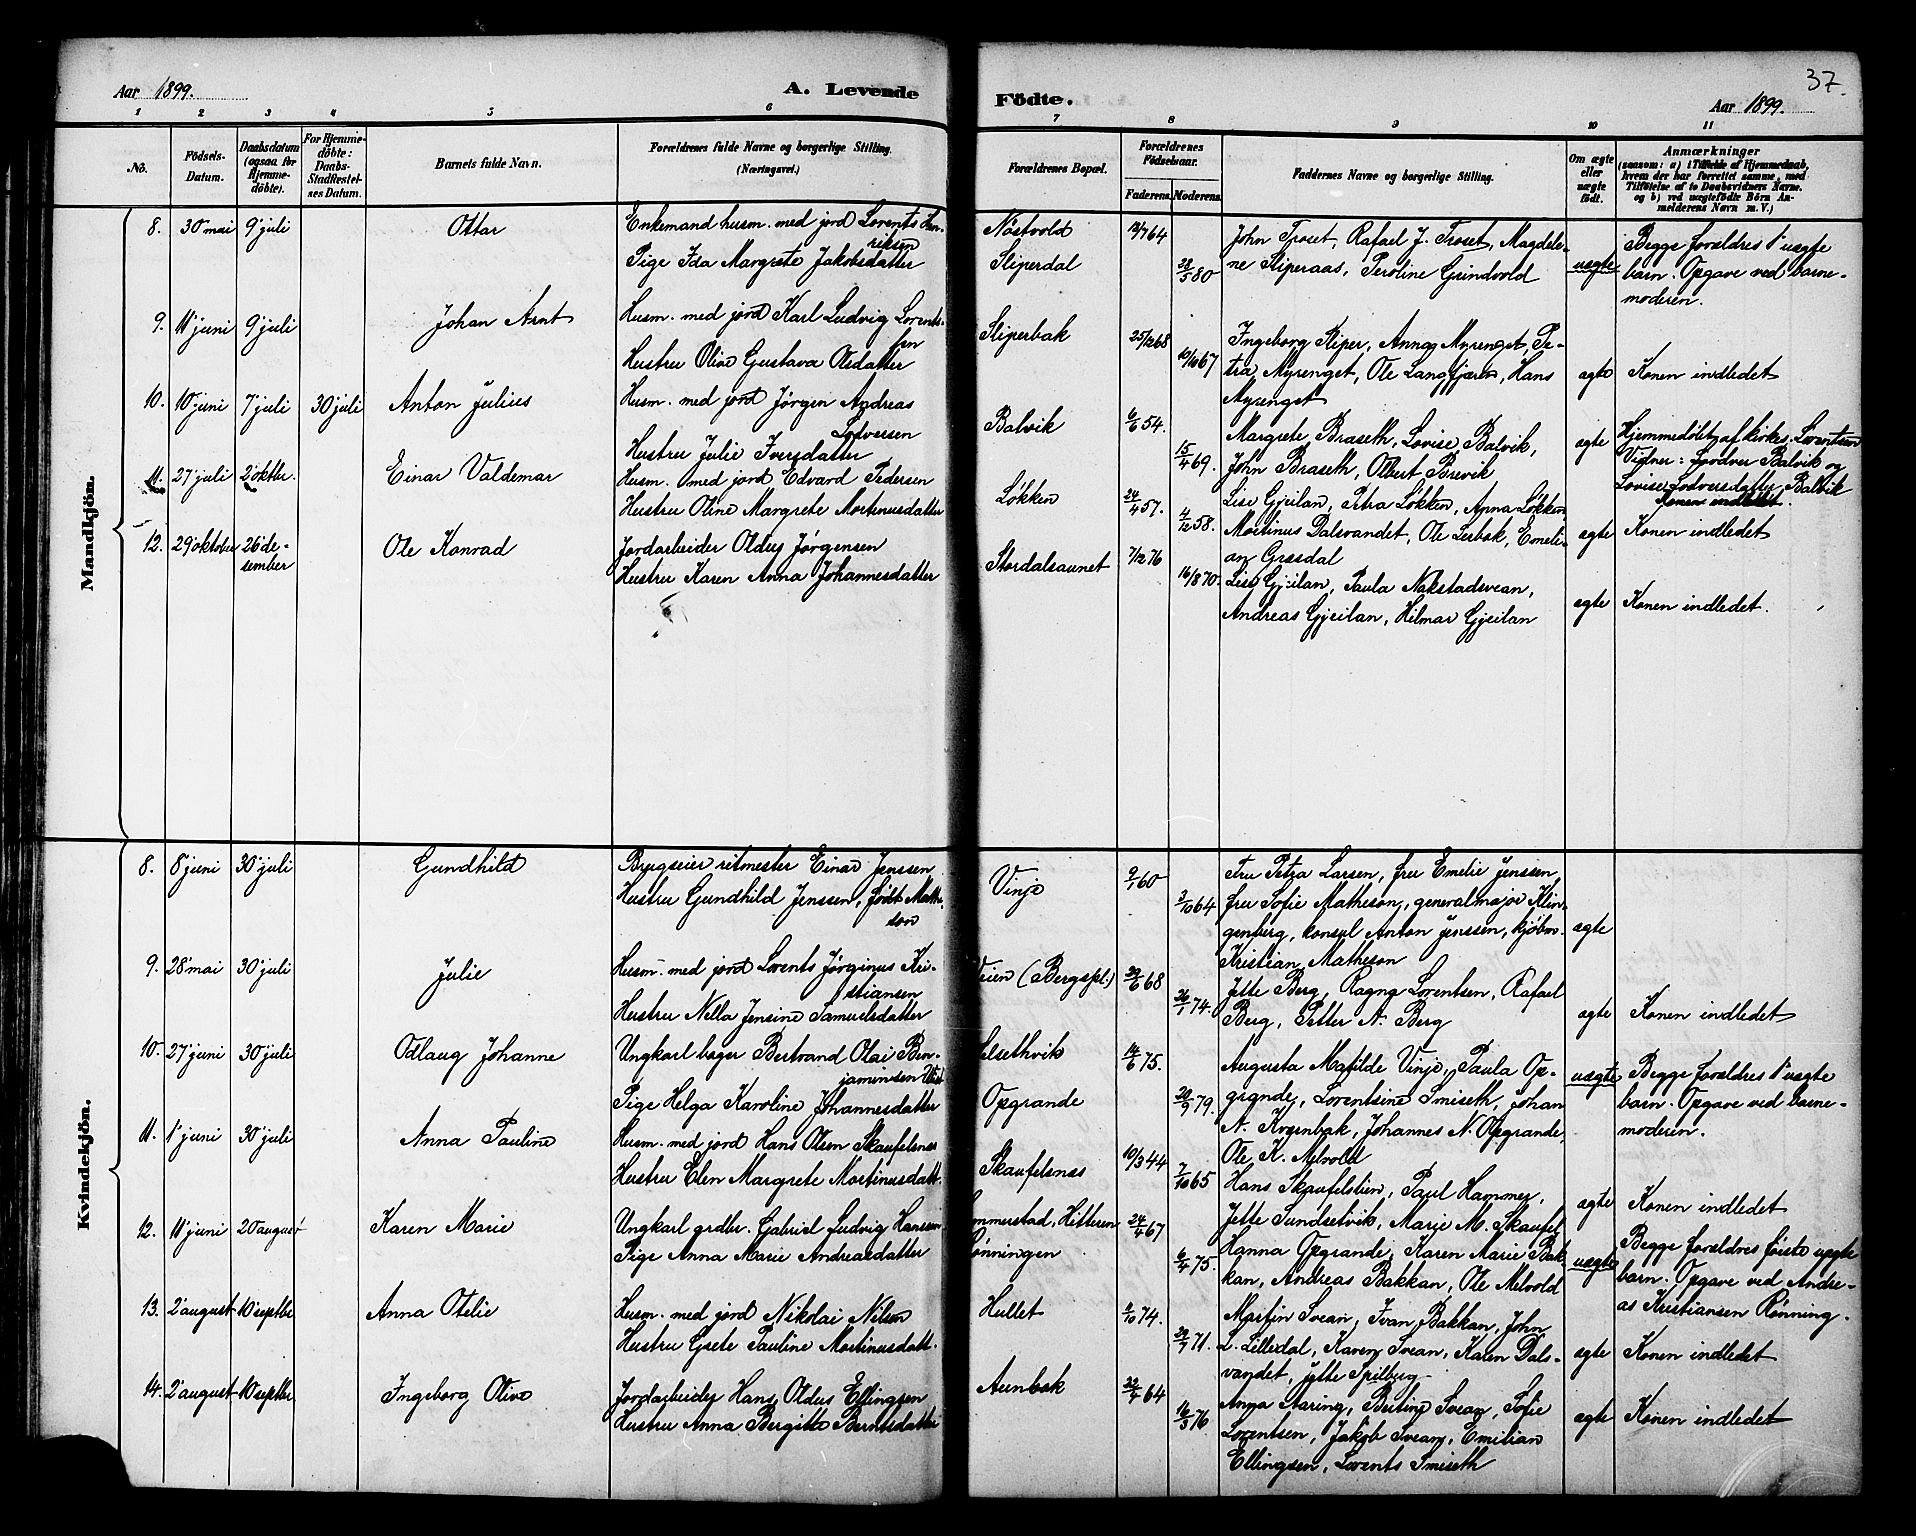 37.
Aar 1899.
A. Levende
Födte.
Aar 1899.
1 2 3 4 5 6 7 8 9 10 11
No.
Födsels-
Datum.
Daabsdatum
(ogsaa for
Hjemme-
döbte).
For Hjemme-
döbte:
Daabs-
Stadfæstel-
ses Datum.
Barnets fulde Navn.
Forældrenes fulde Navne og borgerlige Stilling.
(Næringsvei.)
Forældrenes Bopæl.
Forældrenes
Födselsaar.
Faderens. Moderens.
Faddernes Navne og borgerlige Stilling.
Om ægte
eller
uægte
födt.
Anmærkninger
(saasom: a) i Tilfælde af Hjemmedaab,
hvem der har forrettet samme, med
Tilföielse af to Daabsvidners Navne.
og b) ved uægtefödte Börn An-
melderens Navn m. V.)
Mandkjön.
8. 30 mai 9 juli
Ottar
Enkemand husm. med jord Lorents Hen-
riksen
Pige Ida Margrete Jakobsdatter
Nøstvold
Sliperdal
12/7 64
28/5 80
John Troset, Rafael J. Troset, Magdele-
ne Sliperaas, Peroline Grindvold
uægte
Begge forældres 1' uægte
barn. Opgave ved barne-
moderen.
9. 11' juni 9' juli
Johan Arnt
Husm. med jord Karl Ludvig Lorents-
sen
Hustru Olive Gustava Olsdatter
Sliperbak
25/12 68
10/10 67
Ingeborg Kiper, Anna Myrenget, Pe-
tra Myrenget, Ole Langfjæren, Hans
Myrenget
ægte
Konen indledet
10. 10' juni 7' juli 30 juli
Anton Julius
Husm. med jord Jørgen Andreas
Lodversen
Hustru Julie Iversdatter
Balvik
6/6 54.
15/4 69.
Margrete Braseth, Lovise Balvik,
John Braseth, Olbert Brevik
ægte
Hjemmedøbt af kirkes. Lorentsen
Vidner: Lodver Balvik og
Lovise Lodversdatter Balvik
Konen indledet.
11. 27' juli 2' oktbr.
Einar Valdemar
Husm. med jord Edvard Pedersen
Hustru Oline Margrete Mortinusdatter
Løkken
24/4 57.
4/12 58.
Lise Gjeilan, Petra Løkken, Anna Løkken
Mortinus Dalsvandet, Ole Lerbak, Emeli-
an Grasdal
ægte
Konen indledet
12. 29' oktober 26' de-
sember
Ole Konrad
Jordarbeider Oldus Jørgensen
Hustru Karen Anna Johannesdatter
Stordalsaunet
7/12 76
16/8 70.
Lise Gjeilan, Paula Nakstadsvean,
Andreas Gjeilan, Hilmar Gjeilan
ægte
Konen indledet.
Kvindekjön.
8. 8' juni 30' juli
Gundhild
Brugseier ritmester Einar Jenssen
Hustru Gundhild Jenssen, født Mathe-
son
Vinje
9/1 60
3/10 64
Fru Petra Larsen, fru Emelie Jenssen,
fru Sofie Matheson, generalmajor Klin-
genberg, konsul Anton Jenssen, kjøbm.
Kristian Matheson
ægte
9. 28' mai 30' juli
Julie
Husm. med jord Lorents Jørginus Kri-
stiansen
Hustru Nella Jensine Samuelsdatter
Veien (Bergspl.)
29/6 68
26/1 74.
Jette Berg, Ragna Lorentsen, Rafael
Berg, Petter A. Berg
ægte
Konen indledet
10. 27' juni 30' juli
Odlaug Johanne
Ungkarl bager Bertrand Olai Ben-
jaminsen
Pige Helga Karoline Johannesdatter
Selsethvik
Opgrande
14/6 75.
20/9 79.
Augusta Matilde Vinje, Paula Op-
grande, Lorentsine Smiseth, Johan
N. Kvernbak, Johannes N. Opgrande
Ole K. Melvold
uægte
Begge forældres 1' uægte
barn. Opgave ved barne-
moderen.
11. 1' juni 30' juli
Anna Pauline
Husm. med jord Hans Olsen Skaufelsnes
Hustru Elen Margrete Mortinusdatt.
Skaufelsnæs
10/3 44
7/10 65
Hans Skaufelslien, Paul Hammer,
Jette Sundsetvik, Marie M. Skaufel
ægte
Konen indledet
12. 11' juni 20' august
Karen Marie
Ungkarl grdbr. Gabriel Ludvig Hanssen
Pige Anna Marie Andreasdatter
Hammerstad, Hitteren
Rønningen
24/4 67
6/4 75.
Hanna Opgrande, Karen Marie Bak-
kan, Andreas Bakkan, Ole Melvold
uægte
Begge forældres første uægte
barn. Opgave ved Andre-
as Kristiansen Rønning.
13. 2' august 10' septbr
Anna Otelie
Husm. med jord Nikolai Nilsen
Hustru Grete Pauline Mortinusdatt.
Hullet
6/10 74.
29/7 71.
Martin Svean, Ivan Bakkan, John
L. Lilledal, Karen Svean, Karen Dals-
vandet, Jette Spilberg
ægte
Konen indledet
14. 2' august 10' septbr
Ingeborg Olive
Jordarbeider Hans Oldus Ellingsen
Hustru Anna Bergitte Berntsdatter
Aunbak
22/4 64
16/3 76
Anna Staring, Berlina Svean, Sofie
Lorentsen, Jakob Svean, Emilian
Ellingsen, Lorents Smiseth
ægte
Konen indledet